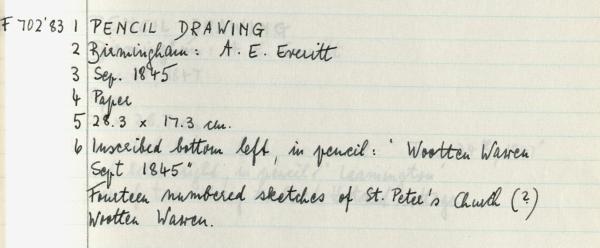 F 702'83 1 PENCIL DRAWING
2 Birmingham: A. E. Everitt
3 Sep. 1845
4 Paper
5 28.3 x 17.3 cm.
6 Inscribed bottom left, in pencil: 'Wootten Wawen
Sept 1845"
Fourteen numbered sketches of St. Peter's Church (?)
Wootten Wawen.